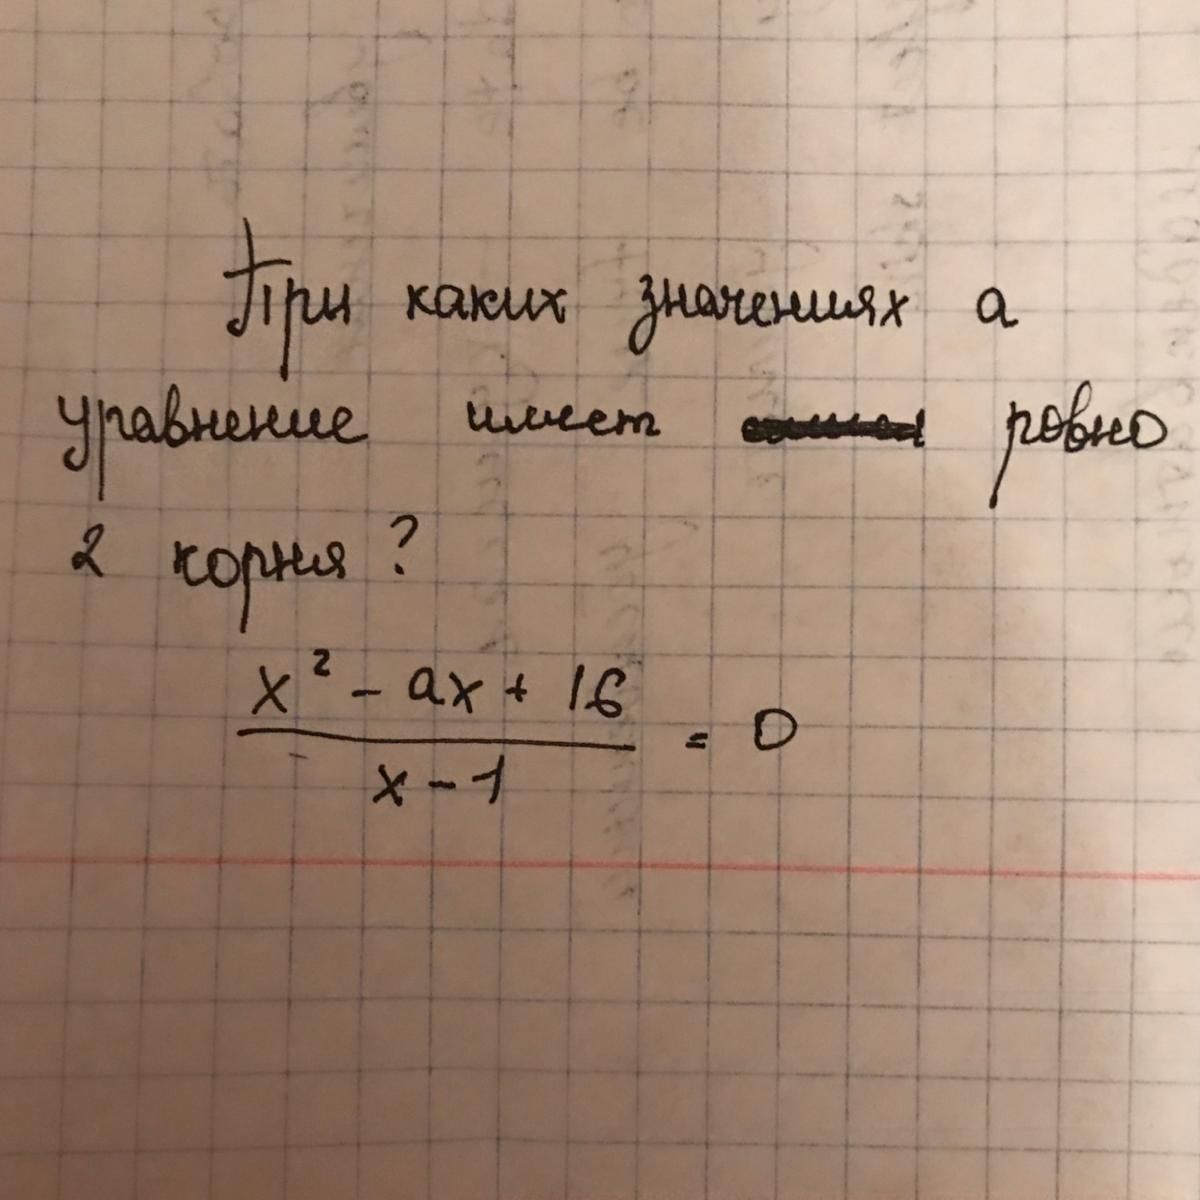 При каких значениях а
уравнение имеет ровно
2 корня?
x² - ax + 16
x - 1
= 0